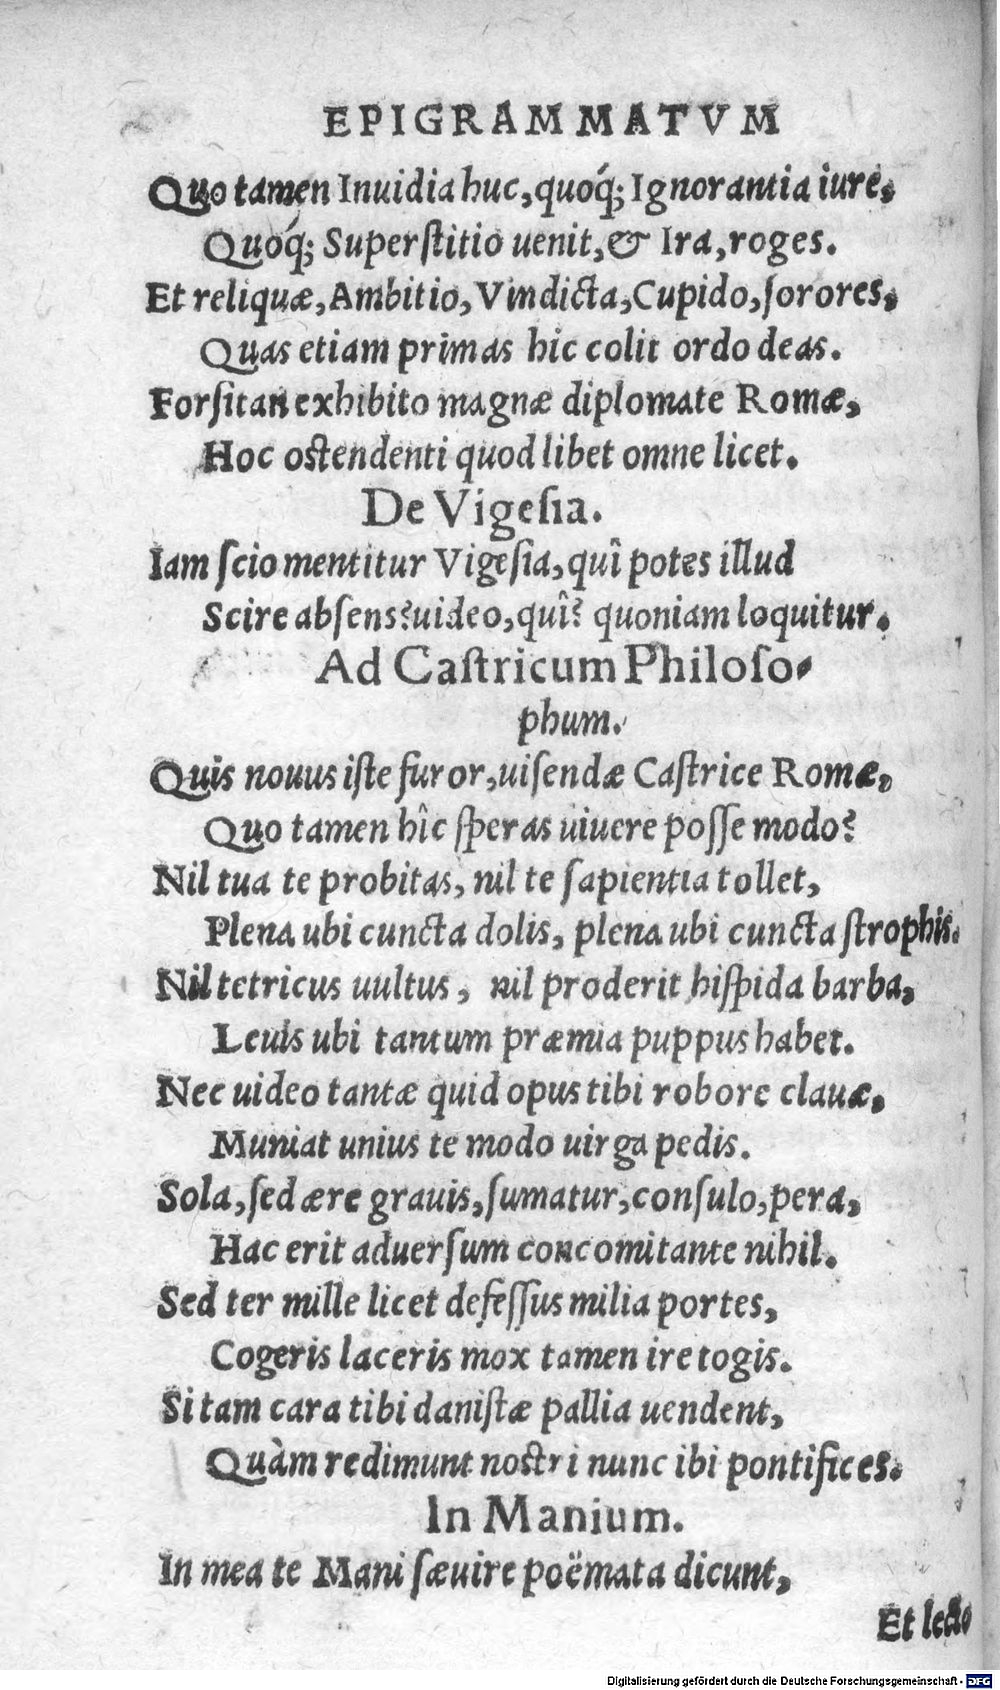 EPIGRAMMATVM
Quo tamen Inuidia huc, quoq́; Ignorantia iure,
Quoq́; Superſtitio uenit, & Ira, roges.
Et reliquæ, Ambitio, Vindicta, Cupido, ſorores,
Quas etiam primas hic colit ordo deas.
Forſitan exhibito magnæ diplomate Romæ,
Hoc oſtendenti quod libet omne licet.
De Vigeſia.
Iam ſcio mentitur Vigeſia, quî potes illud
Scire abſens? uideo, quî? quoniam loquitur.
Ad Caſtricum Philoſo-
phum.
Quis nouus iſte furor, uiſendæ Caſtrice Romæ,
Quo tamen hîc ſperas uiuere poſſe modo?
Nil tua te probitas, nil te ſapientia tollet,
Plena ubi cuncta dolis, plena ubi cuncta ſtrophis.
Nil tetricus uultus, nil proderit hiſpida barba,
Leuis ubi tantum præmia puppus habet.
Nec uideo tantæ quid opus tibi robore clauæ,
Muniat unius te modo uirga pedis.
Sola, ſed ære grauis, ſumatur, conſulo, pera,
Hac erit aduerſum concomitante nihil.
Sed ter mille licet defeſſus milia portes,
Cogeris laceris mox tamen ire togis.
Si tam cara tibi daniſtæ pallia uendent,
Quàm redimunt noſtri nunc ibi pontifices.
In Manium.
In mea te Mani ſæuire poëmata dicunt,
Et lecto
Digitalisierung gefördert durch die Deutsche Forschungsgemeinschaft - DFG